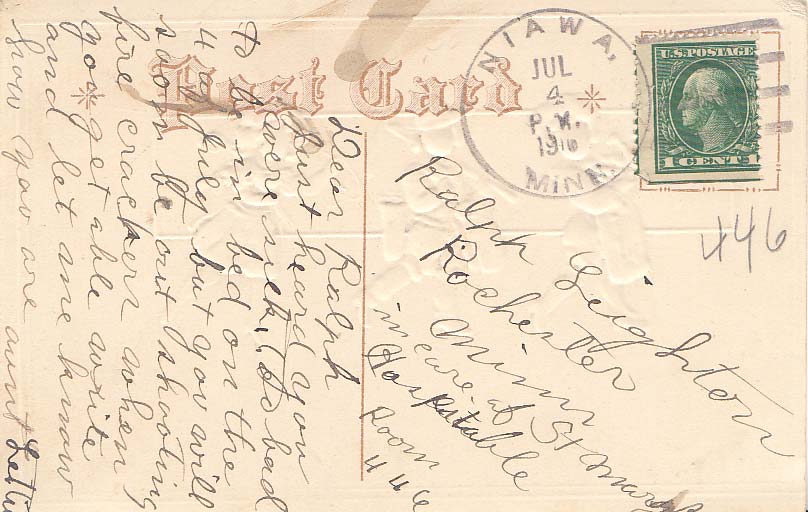 Post Card
NIAWA,
JUL
4
P.M.
1916
MINN.
U.S. POSTAGE
1 CENT 1
446
Dear Ralph
Just heard you
were sick. Is bad
to be in bed on the
4 of July but you will
soon be out shooting
fire crackers when
you get able write
and let me know
how you are aunt Letti
Ralph Leighton
Rochester
Minn
in care of St Marys
Hospitable
Room
446